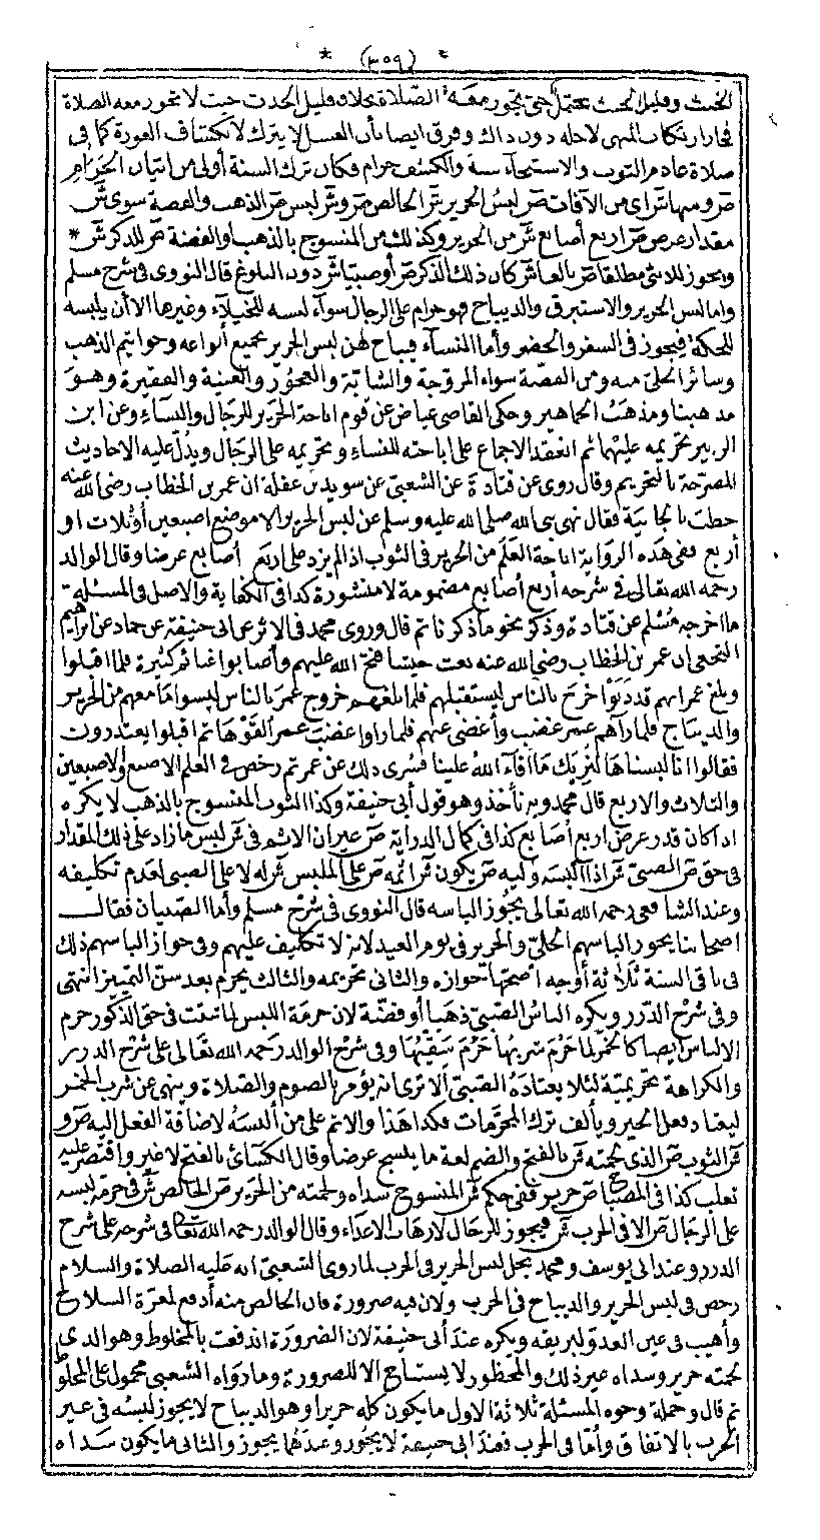 * (٣٥٩) *
الخبث وقليل الخبث يحتمل حتى يجوز معه الصلاة بخلاف قليل الحدث حيث لا تجوز معه الصلاة
في ارتكاب المنهي لاجله دون ذاك وفرق ايضا بأن الغسل لا يترك لانكشاف العورة كما في
صلاة عادم الثوب والاستنجاء سنة والكشف حرام فكان ترك السنة أولى من اتيان الحرام
ص ومنها ش اى من الآفات ص لبس الحرير ش الخالص ص و ش لبس ص الذهب والفضة سوى ش
مقدار عرض ص اربع أصابع ش من الحرير وكذلك من المنسوج بالذهب أو الفضة ص للذكر ش *
ويجوز للانثى مطلقا ص بالغا ش كان ذلك الذكر ص أو صبيا ش دون البلوغ قال النووى في شرح مسلم
واما لبس الحرير والاستبرق والديباج فهو حرام على الرجال سواء لبسه للخيلاء وغيرها الا أن يلبسه
للحكة فيجوز في السفر والحضر وأما النساء فيباح لهن لبس الحرير بجميع أنواعه وخواتيم الذهب
وسائر الحلى منه ومن الفضة سواء المزوجة والشابة والعجوز والغنية والفقيرة وهو
مذهبنا ومذهب الجماهير وحكى القاضى عياض عن قوم اباحة الحرير للرجال والنساء وعن ابن
الزبير تحريمه عليهما ثم انعقد الاجماع على اباحته للنساء وتحريمه على الرجال ويدل عليه الاحاديث
المصرحة بالتحريم وقال روى عن قتادة عن الشعبى عن سويد بن غفلة ان عمر بن الخطاب رضى الله عنه
خطب بالجابية فقال نهى نبى الله صلى الله عليه وسلم عن لبس الحرير الا موضع اصبعين أو ثلاث او
أربع ففى هذه الرواية اباحة العلم من الحرير في الثوب اذا لم يزد على اربع أصابع عرضا وقال الوالد
رحمه الله تعالى في شرحه أربع أصابع مضمومة لا منشورة كذا في الكفاية والاصل في المسئلة
ما اخرجه مسلم عن قتادة وذكر نحو ما ذكرنا ثم قال وروى محمد في الاثر عن ابى حنيفة عن حماد عن ابراهيم
النخعى ان عمر بن الخطاب رضى الله عنه بعث جيشا ففتح الله عليهم وأصابوا غنائم كثيرة فلما اقبلوا
وبلغ عمر انهم قد دنوا خرج بالناس ليستقبلهم فلما بلغهم خروج عمر بالناس لبسوا ما معهم من الحرير
والديباج فلما رآهم عمر غضب وأعرض عنهم فلما راوا غضب عمر القوها ثم اقبلوا يعتذرون
فقالوا انا لبسناها لنريك ما أفاء الله علينا فسرى ذلك عن عمر ثم رخص في العلم الاصبع والاصبعين
والثلاث والاربع قال محمد وبه نأخذ وهو قول أبى حنيفة وكذا الثوب المنسوج بالذهب لا يكره
اذا كان قدر عرض اربع أصابع كذا في كمال الدراية ص غير ان الاثم في ش لبس ما زاد على ذلك المقدار
في حق ص الصبى ش اذا البسه وليه ص يكون ش اثمه ص على الملبس ش له لا على الصبى لعدم تكليفه
وعند الشافعى رحمه الله تعالى يجوز الباسه قال النووى في شرح مسلم وأما الصبيان فقال
اصحابنا يجوز الباسهم الحلى والحرير في يوم العيد لانه لا تكليف عليهم وفى جواز الباسهم ذلك
في باقى السنة ثلاثة أوجه اصحها جوازه والثانى تحريمه والثالث يحرم بعد سن التمييز انتهى
وفى شرح الدرر ويكره الباس الصبى ذهبا أو فضة لان حرمة اللبس لما ثبتت في حق الذكور حرم
الالباس ايضا كالخمر لما حرم شربها حرم سقيها وفى شرح الوالد رحمه الله تعالى على شرح الدرر
والكراهة تحريمية لئلا يعتاده الصبى ألا ترى انه يؤمر بالصوم والصلاة وينهى عن شرب الخمر
ليعتاد فعل الخير ويألف ترك المحرمات فكذا هذا والاثم على من ألبسه لاضافة الفعل اليه ص و
ش الثوب ص الذى لحمته ش بالفتح والضم لغة ما ينسج عرضا وقال الكسائى بالفتح لا غير واقتصر عليه
ثعلب كذا في المصباح ص حرير ففى حكم ش المنسوج سداه ولحمته من الحرير ص الخالص ش في حرمة لبسه
على الرجال ص الا في الحرب ش فيجوز للرجال لارهاب الاعداء وقال الوالد رحمه الله تعالى في شرحه على شرح
الدرر وعند ابى يوسف ومحمد يحل لبس الحرير في الحرب لما روى الشعبى انه عليه الصلاة والسلام
رخص في لبس الحرير والديباج في الحرب ولان فيه ضرورة فان الخالص منه أدفع لمعرة السلاح
وأهيب في عين العدو لبريقه ويكره عند أبى حنيفة لان الضرورة اندفعت بالمخلوط وهو الذى
لحمته حرير وسداه غير ذلك والمحظور لا يستباح الا للضرورة وما رواه الشعبى محمول على المخلوط
ثم قال وجملة وجوه المسئلة ثلاثة الاول ما يكون كله حريرا وهو الديباج لا يجوز لبسه في غير
الحرب بالاتفاق وأما في الحرب فعند ابى حنيفة لا يجوز وعندهما يجوز والثانى ما يكون سداه